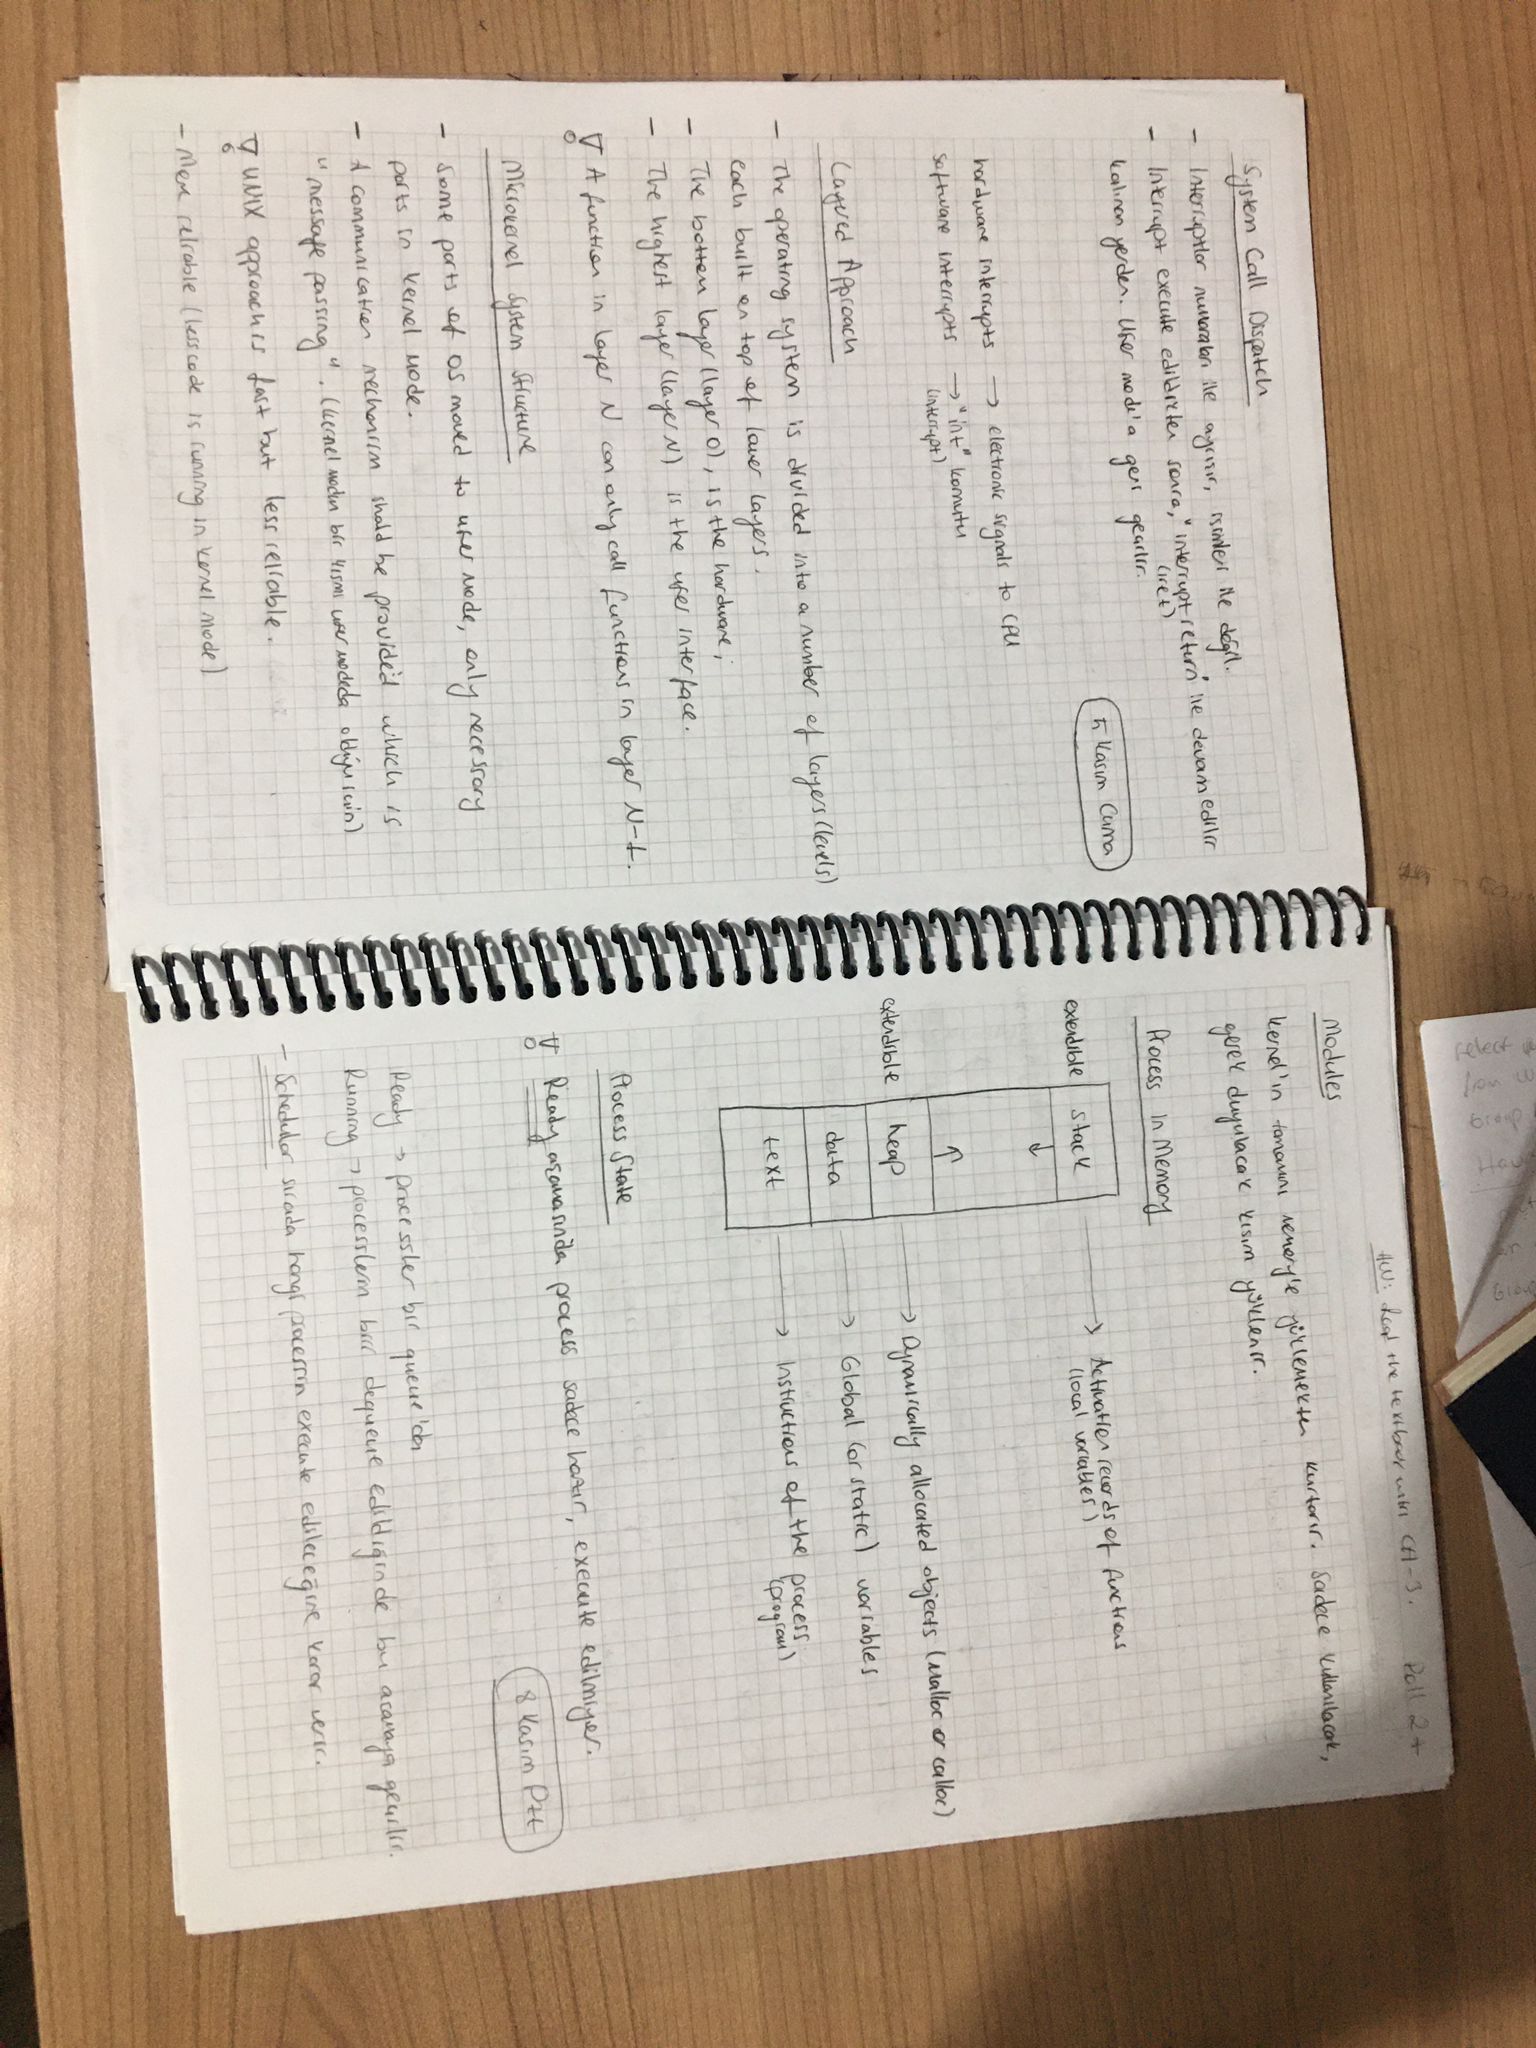 System Call Dispatch
- Interruptlar numaraları ile ayrılır, isimleri ile değil.
- Interrupt execute edildikten sonra, "interrupt return" ile devam edilir
(iret)
kalınan yerden. User mod'a geri geçilir.
5 Kasım Cuma
hardware interrupts → electronic signals to CPU
software interrupts → "int" komutu
(interrupt)
Layered Approach
- The operating system is divided into a number of layers (levels)
each built on top of lower layers.
- The bottom layer (layer 0), is the hardware;
- The highest layer (layer N) is the user interface.
A function in layer N can only call functions in layer N-1.
Microkernel System Structure
- Some parts of OS moved to user mode, only necessary
parts in kernel mode.
- A communication mechanism should be provided which is
"message passing". (kernel modun bir kısmı user modeda olduğu için)
UNIX approach is fast but less reliable.
- More reliable (less code is running in kernel mode)
HW: Read the textbook until CH-3. Poll 2+
Modules
Kernel'in tamamını memory'e yüklemekten kurtarır. Sadece kullanılacak,
gerek duyulacak kısım yüklenir.
Process in Memory
extendible
stack → Activation records of functions
(local variables)
↓
↑
extendible
heap → Dynamically allocated objects (malloc or calloc)
data → Global (or static) variables
text → Instructions of the process
(program)
Process State
8 Kasım Pzt
Ready aşamasında process sadece hazır, execute edilmiyor.
Ready → processler bir queue'da
Running → processlerin biri dequeue edildiğinde bu aşamaya geçilir.
- Schedular sırada hangi processin execute edileceğine karar verir.